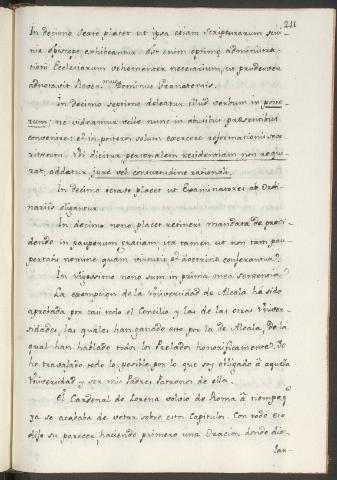 241
In decimo sexto placet ut ipsa etiam scripturarum scru-
tinia episcopis exhibeantur. est enim optime administra-
tioni Ecclesiarum vehementer necessarium, ut prudenter
adnotavit Rever.mus Dominus Granatensis.
In decimo septimo deleatur illud verbum in poste
rum; ne videamur velle nunc in abusibus præsentibus
convenire et in posterum solum exercere reformationis seve
ritatem. Ubi dicitur personalem residentiam non requi
rat, addatur, jure vel consuetudine rationali.
In decimo octavo placet ut Examinatores ab Ordi-
nariis eligantur.
In decimo nono placet retineri mandata de provi
dendo in pauperum gratiam; ita tamen ut non tam pau
pertatis nomine quam virtutis et doctrine conferantur.
In vigessimo nono sum in prima mea sententia.
La exempcion de la Universidad de Alcala há sido
aprobada por casi todo el Concilio y las de las otras Univer-
sidades, las quales han ganado esto por la de Alcala, de la
qual han hablado todos los Prelados honorificamente. Yo
he travajado todo lo posible, por lo que soy obligado â aquella
Universidad y ser mis Padres Patronos de ella.
El Cardenal de Lorena volvio de Roma â tiempo q.
ya se acababa de votar sobre estos Capitulos. Con todo eso
dijo su parecer haciendo primero una Oracion donde dio
las-